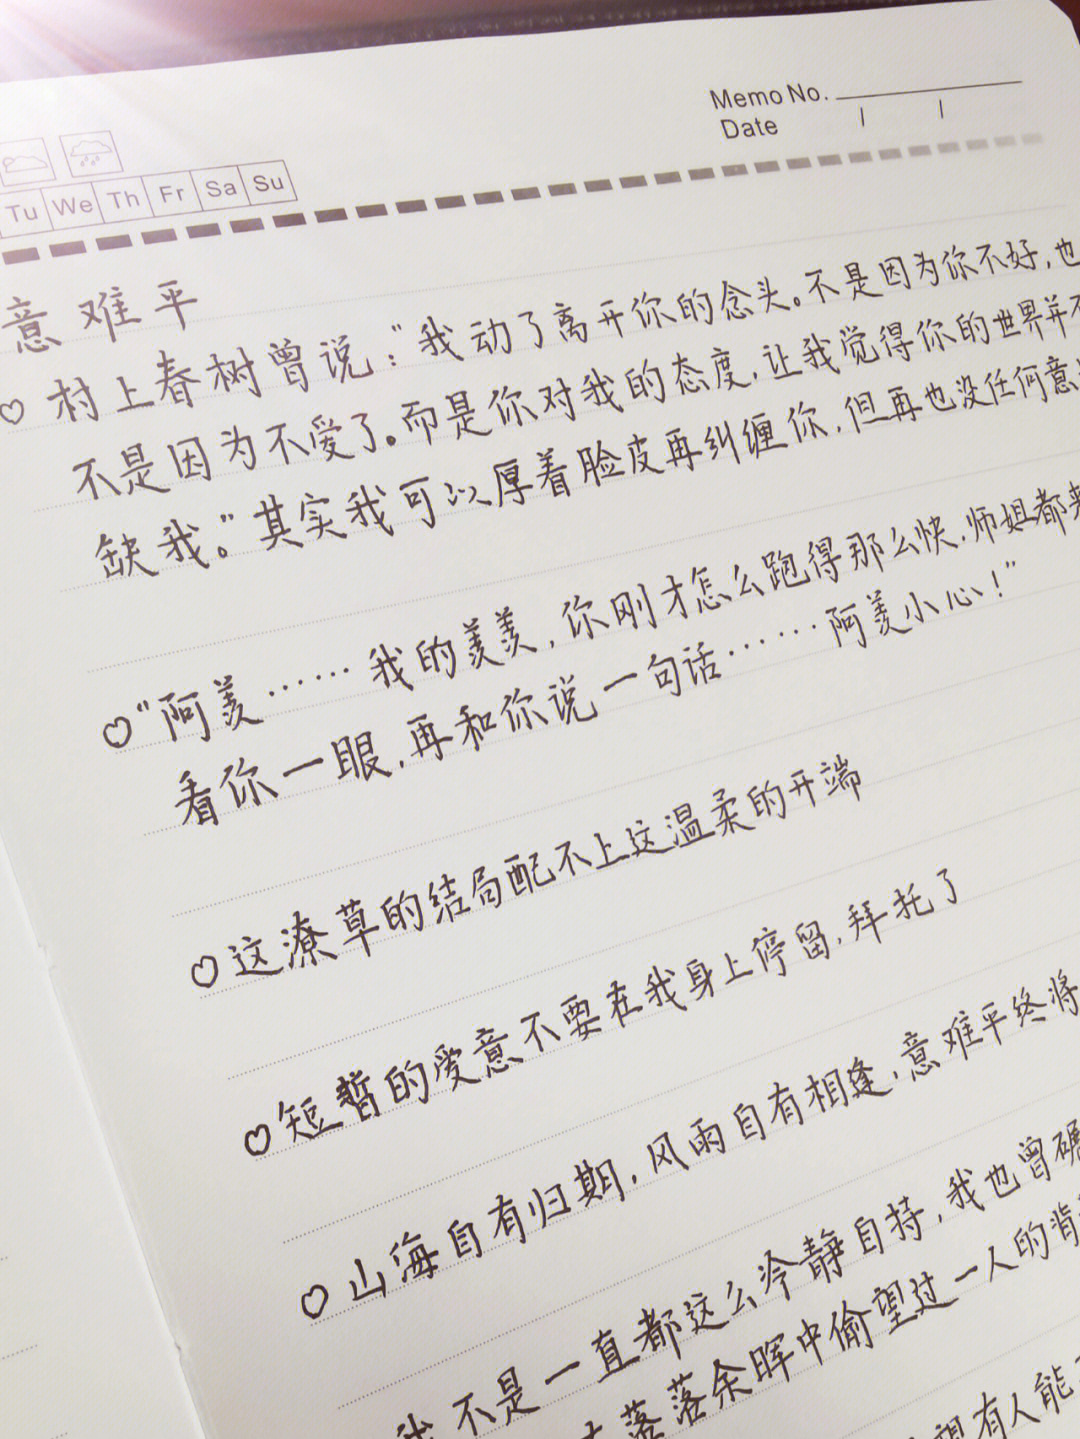 Memo No.
Date / /
Tu We Th Fr Sa Su
意难平
♡ 村上春树曾说：“我动了离开你的念头。不是因为你不好，也
不是因为不爱了。而是你对我的态度，让我觉得你的世界并不
缺我。”其实我可以厚着脸皮再纠缠你，但再也没任何意
♡“阿羡……我的羡羡，你刚才怎么跑得那么快，师姐都来
看你一眼，再和你说一句话……阿羡小心！”
♡ 这潦草的结局配不上这温柔的开端
♡ 短暂的爱意不要在我身上停留，拜托了
♡ 山海自有归期，风雨自有相逢，意难平终将
我不是一直都这么冷静自持，我也曾
落落余晖中偷望过一人的背
有人能